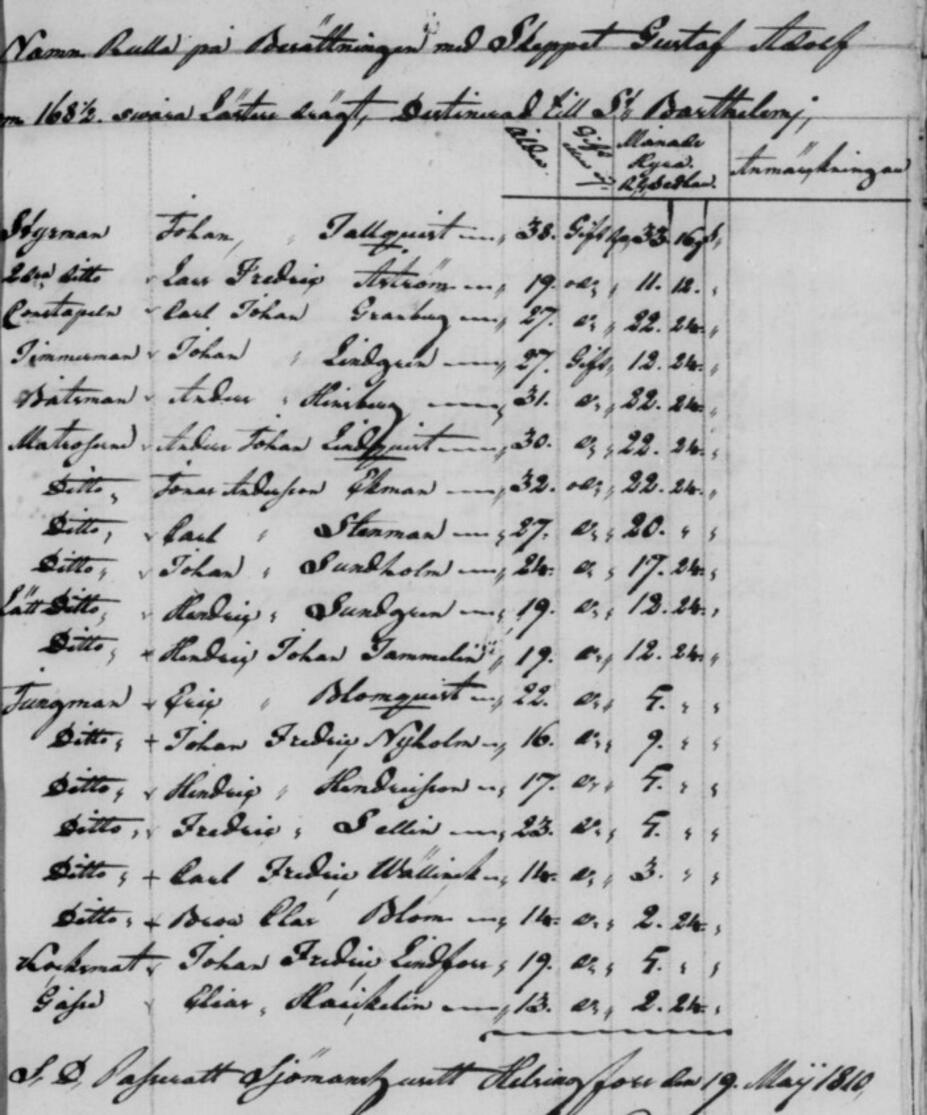 Namn Rulla på Besättningen med Skeppet Gustaf Adolf
om 168½. swåra Läster drägt, Destinerad till St Barthelemj,
Ålder. Gift eller ej Månads Hyra. Rd Sedlar. Anmärckningar
Styrman Johan, " Tallquist — " 38. Gift Rd 33. 16 s
2dra ditto Lars Fredric Åström — " 19. og " 11. 12. "
Constapeln Carl Johan Granberg — " 27. o, " 22. 24. "
Timmerman Johan " Lindgren — " 27. Gift " 12. 24. "
Båtsman Anders " Hinsberg — " 31. o, " 22. 24. "
Matroserne Anders Johan Lindquist — " 30. o, " 22. 24. "
Ditto, Jonas Andersson Ekman — " 32. og " 22. 24. "
Ditto, Carl " Stenman — " 27. o, " 20. " "
Ditto, Johan " Sundholm — " 24. o, " 17. 24. "
Lätt Ditto, Hendric " Sundgren — " 19. o, " 12. 24. "
Ditto, Hendric Johan Tammelin " 19. o, " 12. 24. "
Jungman Eric " Blomquist — " 22. o, " 5. " "
Ditto, + Johan Fredric Nyholm — " 16. o, " 9. " "
Ditto, Hendric " Hendricsson — " 17. o, " 5. " "
Ditto, Fredric " Sellin — " 23. o, " 5. " "
Ditto, + Carl Fredric Wällinck — " 14. o, " 3. " "
Ditto, + Broo Clas Blom — " 14. o, " 2. 24. "
Kocksmat Johan Fredric Lindfors " 19. o, " 5. " "
Gåsse Elias " Hauckelin — " 13. o, " 2. 24. "
S. D. Passeratt Sjömanshusett Helsingfors den 19. Maij 1810,